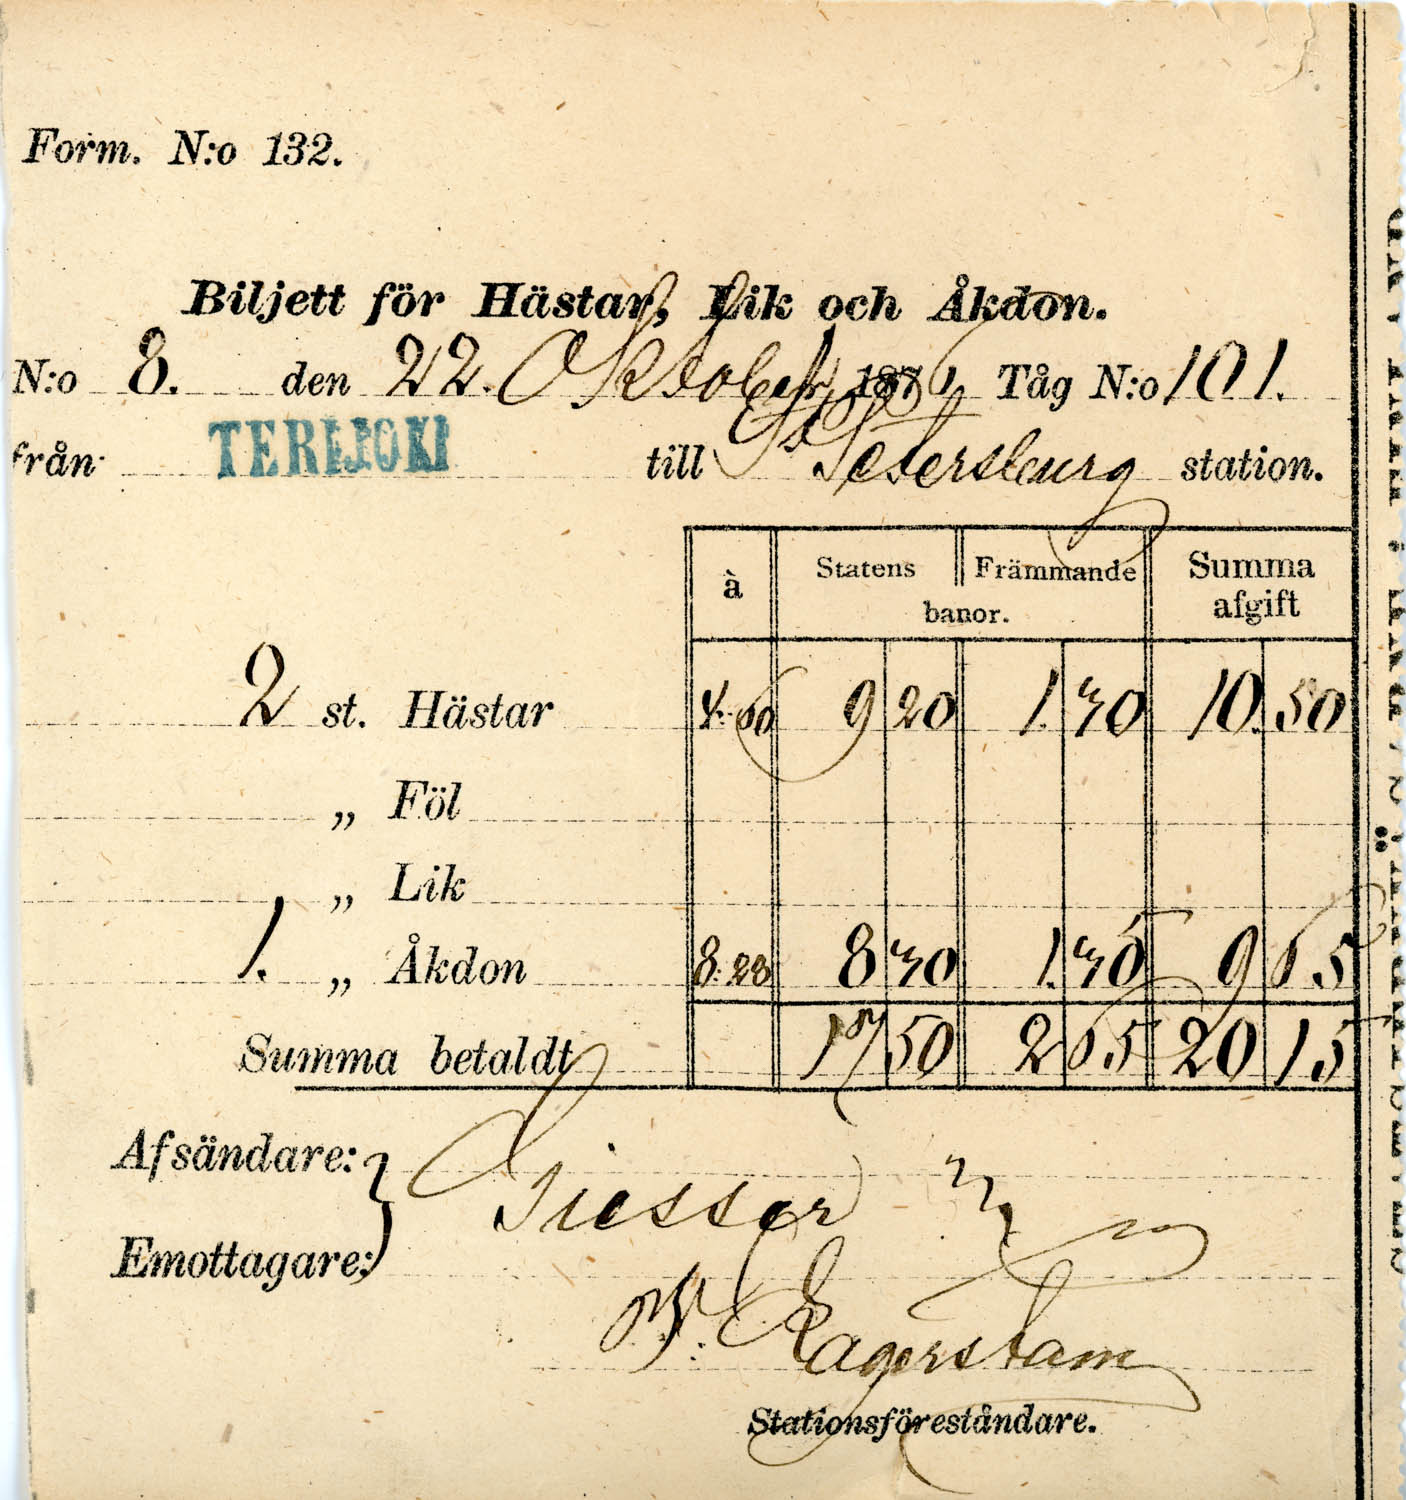 Form. N:o 132.
Biljett för Hästar, Lik och Åkdon.
N:o 8. den 22. Oktober 1876 Tåg N:o 101.
från TERIJOKI till St Petersburg station.
à Statens Främmande Summa
banor. afgift
2 st. Hästar 4.60 9 20 1. 30 10. 50
„ Föl
„ Lik
1. „ Åkdon 8.28 8 30 1. 35 9 65
Summa betaldt 17 50 2 65 20 15
Afsändare:
Emottagare:
Lagerstam
Stationsföreståndare.